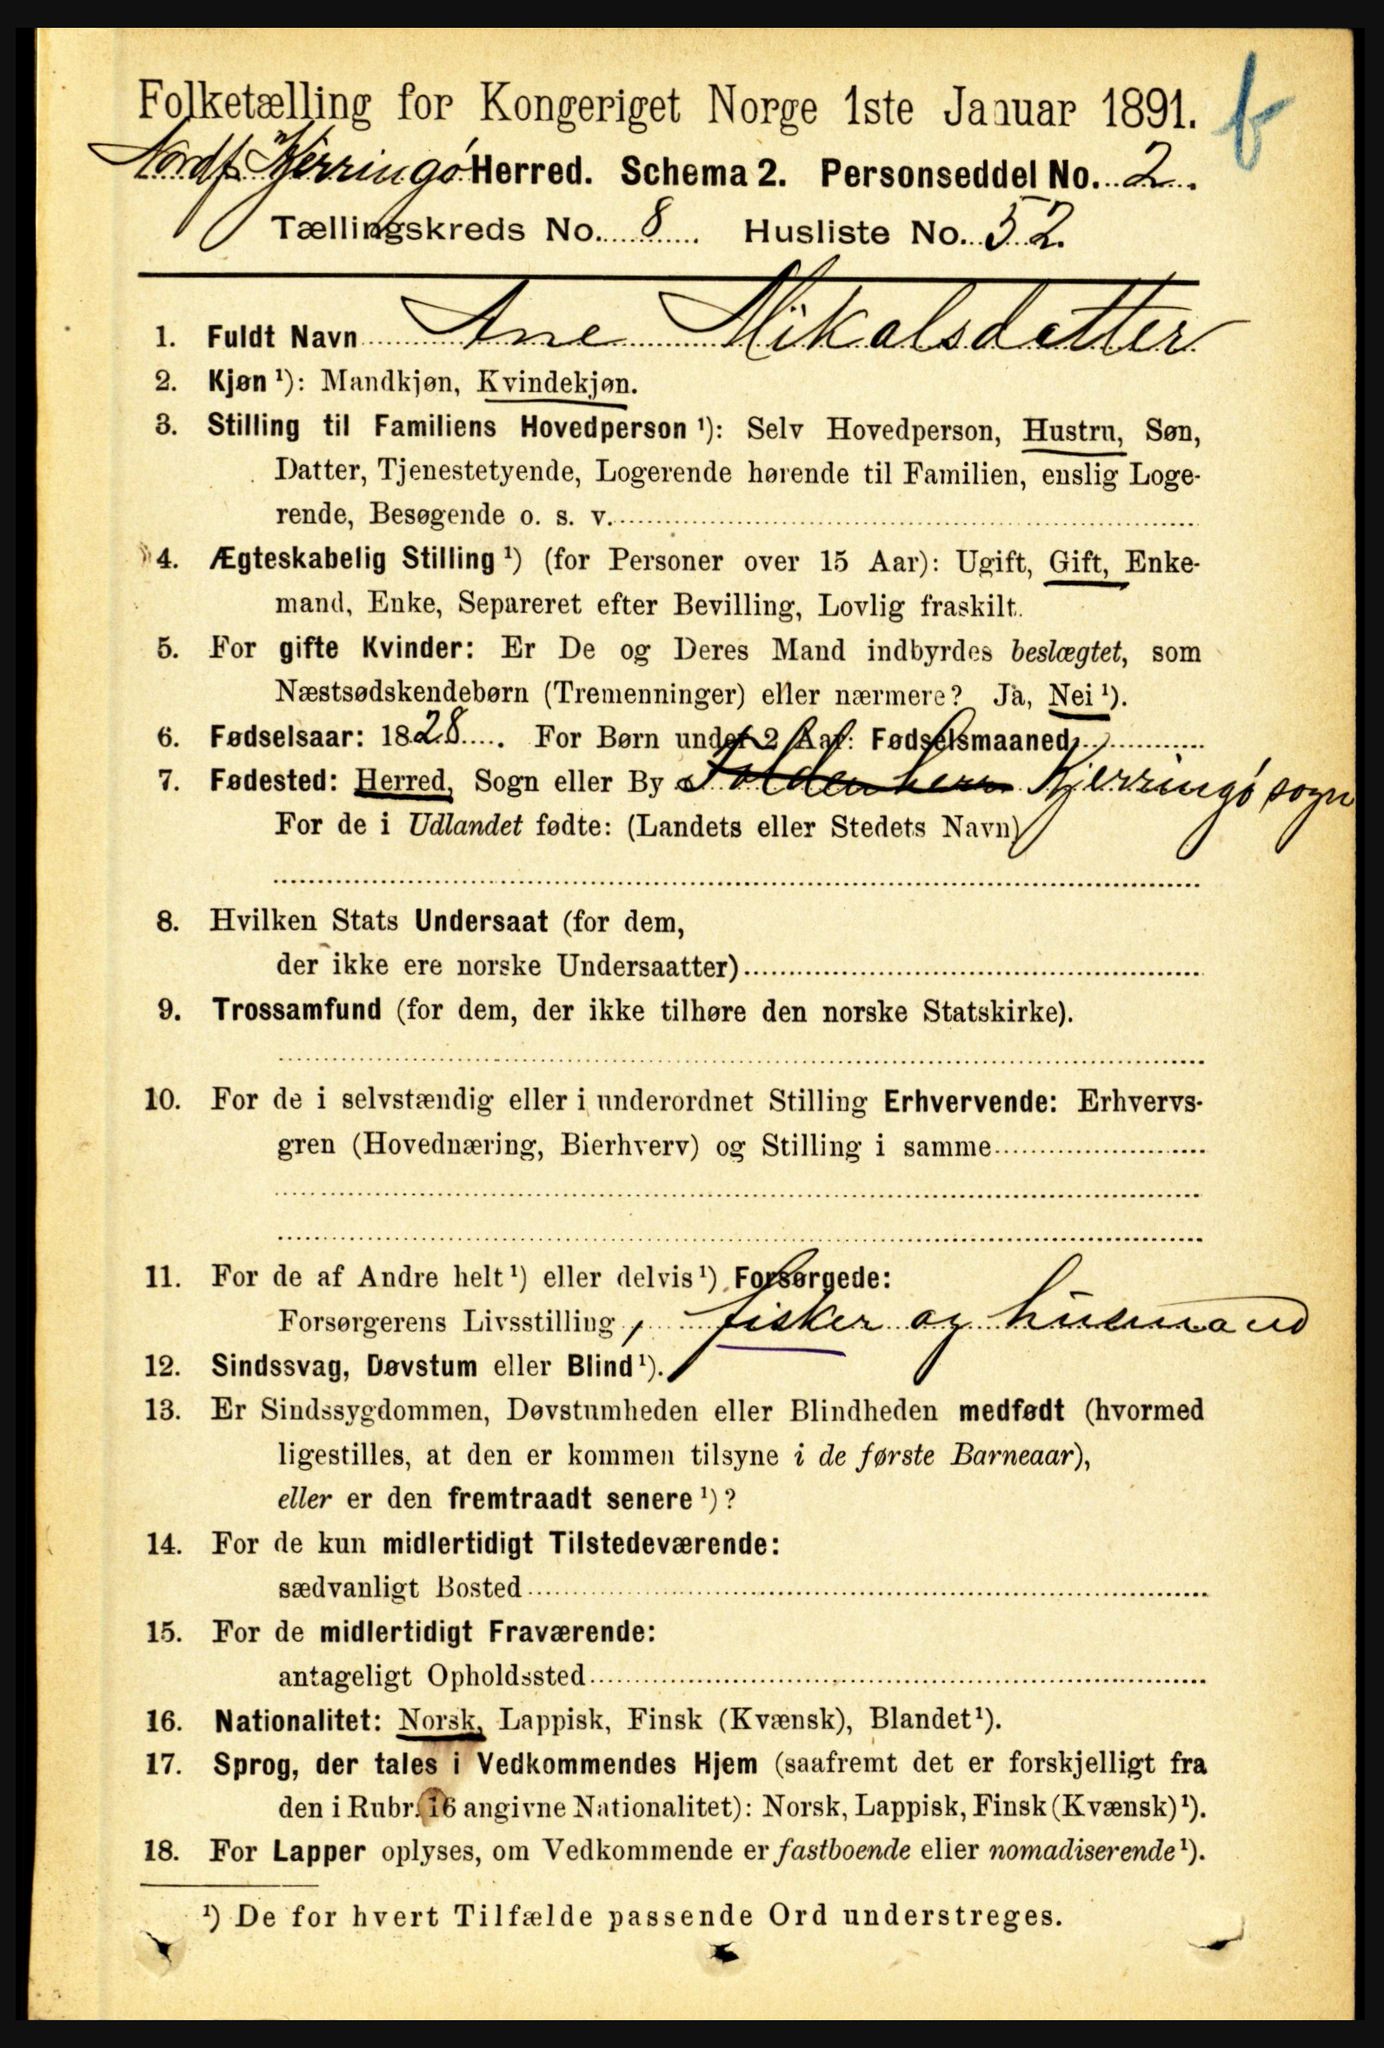 Folketælling for Kongeriget Norge 1ste Januar 1891.
Nordf. Kjerringø Herred. Schema 2. Personseddel No. 2.
Tællingskreds No. 8 Husliste No. 52.
1. Fuldt Navn Ane Mikalsdatter
2. Kjøn ¹): Mandkjøn, Kvindekjøn.
3. Stilling til Familiens Hovedperson ¹): Selv Hovedperson, Hustru, Søn,
Datter, Tjenestetyende, Logerende hørende til Familien, enslig Loge-
rende, Besøgende o. s. v.
4. Ægteskabelig Stilling ¹) (for Personer over 15 Aar): Ugift, Gift, Enke-
mand, Enke, Separeret efter Bevilling, Lovlig fraskilt.
5. For gifte Kvinder: Er De og Deres Mand indbyrdes beslægtet, som
Næstsødskendebørn (Tremenninger) eller nærmere? Ja, Nei ¹).
6. Fødselsaar: 1828. For Børn under 2 Aar: Fødselsmaaned
7. Fødested: Herred, Sogn eller By Folden herr Kjerringø sogn
For de i Udlandet fødte: (Landets eller Stedets Navn)
8. Hvilken Stats Undersaat (for dem,
der ikke ere norske Undersaatter)
9. Trossamfund (for dem, der ikke tilhøre den norske Statskirke).
10. For de i selvstændig eller i underordnet Stilling Erhvervende: Erhvervs-
gren (Hovednæring, Bierhverv) og Stilling i samme
11. For de af Andre helt ¹) eller delvis ¹) Forsørgede:
Forsørgerens Livsstilling, fisker og husmand
12. Sindssvag, Døvstum eller Blind ¹).
13. Er Sindssygdommen, Døvstumheden eller Blindheden medfødt (hvormed
ligestilles, at den er kommen tilsyne i de første Barneaar),
eller er den fremtraadt senere ¹)?
14. For de kun midlertidigt Tilstedeværende:
sædvanligt Bosted
15. For de midlertidigt Fraværende:
antageligt Opholdssted
16. Nationalitet: Norsk, Lappisk, Finsk (Kvænsk), Blandet ¹).
17. Sprog, der tales i Vedkommendes Hjem (saafremt det er forskjelligt fra
den i Rubr. 16 angivne Nationalitet): Norsk, Lappisk, Finsk (Kvænsk) ¹).
18. For Lapper oplyses, om Vedkommende er fastboende eller nomadiserende ¹).
¹) De for hvert Tilfælde passende Ord understreges.